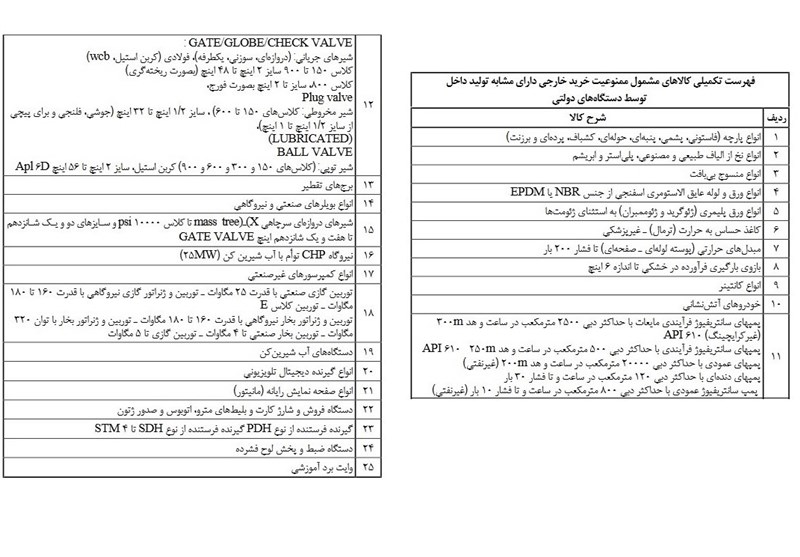 فهرست تکمیلی کالاهای مشمول ممنوعیت خرید خارجی دارای مشابه تولید داخل
توسط دستگاه‌های دولتی
ردیف شرح کالا
۱ انواع پارچه (فاستونی، پشمی، پنبه‌ای، حوله‌ای، کشباف، پرده‌ای و برزنت)
۲ انواع نخ از الیاف طبیعی و مصنوعی، پلی‌استر و ابریشم
۳ انواع منسوج بی‌بافت
۴ انواع ورق و لوله عایق الاستومری اسفنجی از جنس NBR یا EPDM
۵ انواع ورق پلیمری (ژئوگرید و ژئوممبران) به استثنای ژئومت‌ها
۶ کاغذ حساس به حرارت (ترمال) ـ غیرپزشکی
۷ مبدل‌های حرارتی (پوسته لوله‌ای ـ صفحه‌ای) تا فشار ۲۰۰ بار
۸ بازوی بارگیری فرآورده در خشکی تا اندازه ۶ اینچ
۹ انواع کانتینر
۱۰ خودروهای آتش‌نشانی
۱۱ پمپهای سانتریفیوژ فرآیندی مایعات با حداکثر دبی ۲۵۰۰ مترمکعب در ساعت و هد ۳۰۰m
(غیرکرایجینگ) API ۶۱۰
پمپهای سانتریفیوژ فرآیندی با حداکثر دبی ۵۰۰ مترمکعب در ساعت و هد ۲۵۰m API ۶۱۰
پمپهای عمودی با حداکثر دبی ۲۰۰۰۰ مترمکعب در ساعت و هد ۲۰۰m (غیرنفتی)
پمپهای دنده‌ای با حداکثر دبی ۱۲۰ مترمکعب در ساعت و تا فشار ۳۰ بار
پمپ سانتریفیوژ عمودی با حداکثر دبی ۸۰۰ مترمکعب در ساعت و تا فشار ۱۰ بار (غیرنفتی)
۱۲ GATE/GLOBE/CHECK VALVE :
شیرهای جریانی: (دروازه‌ای، سوزنی، یکطرفه)، فولادی (کربن استیل، wcb)
کلاس ۱۵۰ تا ۹۰۰ سایز ۲ اینچ تا ۴۸ اینچ (بصورت ریخته‌گری)
کلاس ۸۰۰، سایز تا ۲ اینچ بصورت فورج،
Plug valve
شیر مخروطی: (کلاس‌های ۱۵۰ تا ۶۰۰) ، سایز ۱/۲ اینچ تا ۳۲ اینچ (جوشی، فلنجی و برای پیچی
از سایز ۱/۲ اینچ تا ۱ اینچ)،
(LUBRICATED)
BALL VALVE
شیر توپی: (کلاس‌های ۱۵۰ و ۳۰۰ و ۶۰۰ و ۹۰۰) کربن استیل، سایز ۲ اینچ تا ۵۶ اینچ Apl ۶D
۱۳ برج‌های تقطیر
۱۴ انواع بویلرهای صنعتی و نیروگاهی
۱۵ شیرهای دروازه‌ای سرچاهی X)ـ(mass tree تا کلاس ۱۰۰۰۰ psi و سایزهای دو و یک شانزدهم
تا هفت و یک شانزدهم اینچ GATE VALVE
۱۶ نیروگاه CHP توأم با آب شیرین کن (۲۵MW)
۱۷ انواع کمپرسورهای غیرصنعتی
۱۸ توربین گازی صنعتی با قدرت ۲۵ مگاوات ـ توربین و ژنراتور گازی نیروگاهی با قدرت ۱۶۰ تا ۱۸۰
مگاوات ـ توربین کلاس E
توربین و ژنراتور بخار نیروگاهی با قدرت ۱۶۰ تا ۱۸۰ مگاوات ـ توربین و ژنراتور بخار با توان ۳۲۰
مگاوات ـ توربین بخار صنعتی تا ۴ مگاوات ـ توربین گازی تا ۵ مگاوات
۱۹ دستگاه‌های آب شیرین‌کن
۲۰ انواع گیرنده دیجیتال تلویزیونی
۲۱ انواع صفحه نمایش رایانه (مانیتور)
۲۲ دستگاه فروش و شارژ کارت و بلیط‌های مترو، اتوبوس و صدور ژتون
۲۳ گیرنده فرستنده از نوع PDH گیرنده فرستنده از نوع SDH تا STM ۴
۲۴ دستگاه ضبط و پخش لوح فشرده
۲۵ وایت برد آموزشی